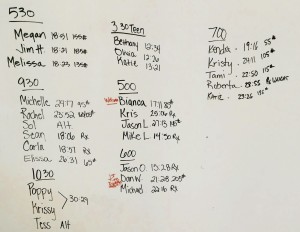 530
Megan 18:51 155#
Jim H. 18:21 185#
Melissa 18:23 135#
930
Michelle 24:77 95#
Rachel 23:52
Sol Alt
Sean 18:06 Rx
Carla 18:57 Rx
Elissa 26:31 65#
1030
Poppy
Krissy
30:29
Tess Alt
3,30 Teen
Bethany 12:34
Olivia 12:20
Katie 13:21
500
Bianca 17:11 85#
Kris 20:06 Rx
Jason L. 27:13 115#
Mike L. 14:50 Rx
600
Jason O. 15:28 Rx
Dan W. 21:28 205#
Michael 22:16 Rx
700
Kenda 19:16 55#
Kristy 24:11 105#
Tami 22:50 115#
Roberta 28:55
Kara